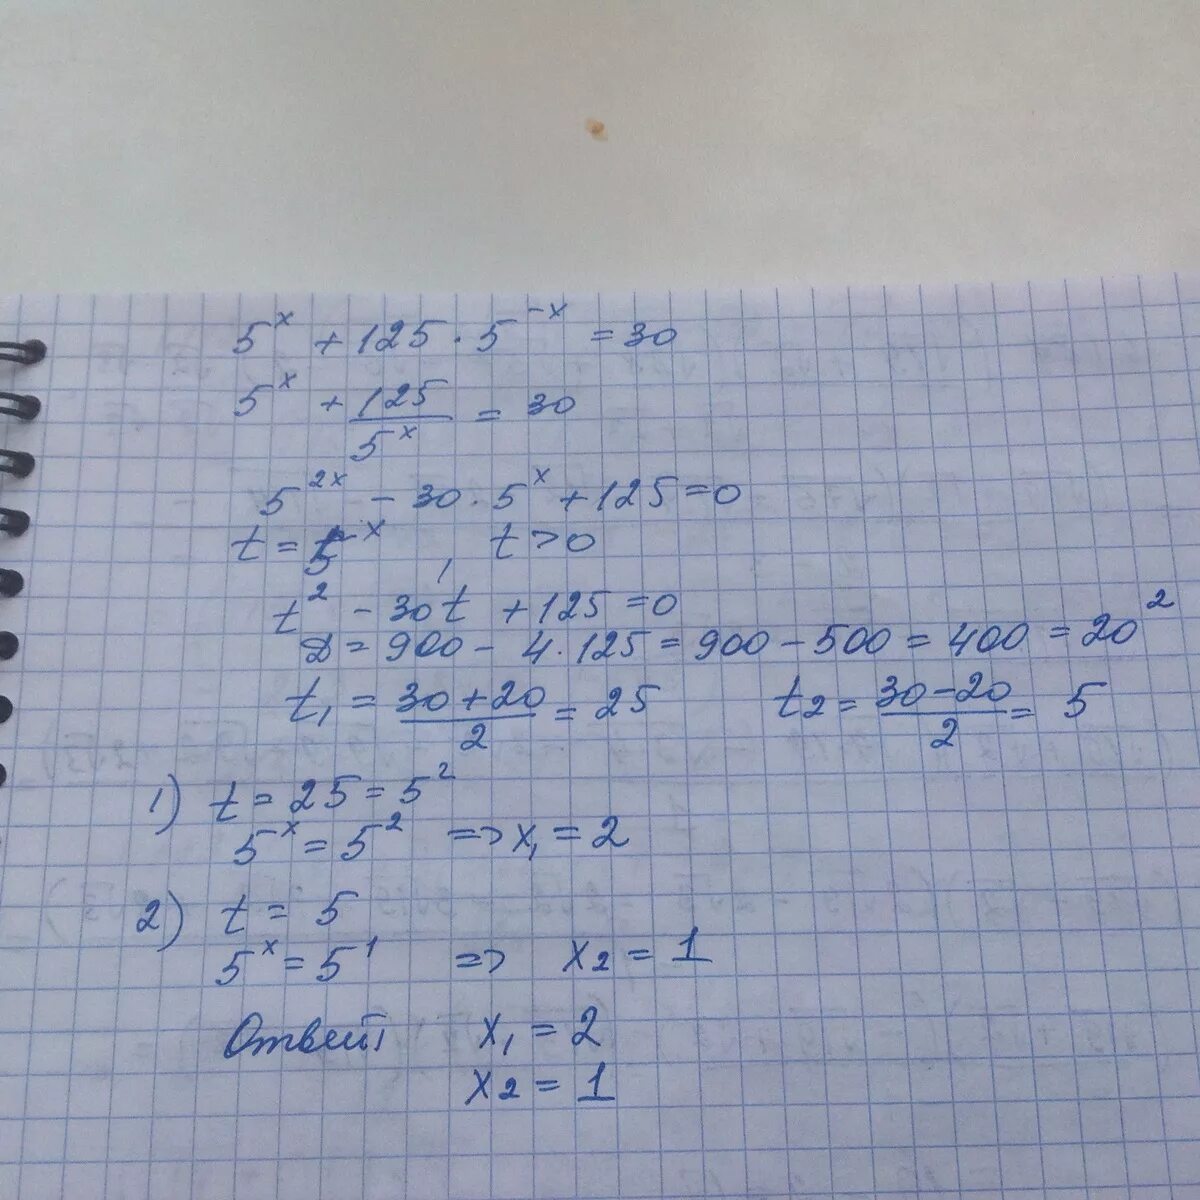 5^x + 125 · 5^{-x} = 30
5^x + 125/5^x = 30
5^{2x} - 30 · 5^x + 125 = 0
t = 5^x, t > 0
t^2 - 30t + 125 = 0
D = 900 - 4 · 125 = 900 - 500 = 400 = 20^2
t_1 = (30 + 20)/2 = 25 t_2 = (30 - 20)/2 = 5
1) t = 25 = 5^2
5^x = 5^2 => x_1 = 2
2) t = 5
5^x = 5^1 => x_2 = 1
Ответ: x_1 = 2
x_2 = 1